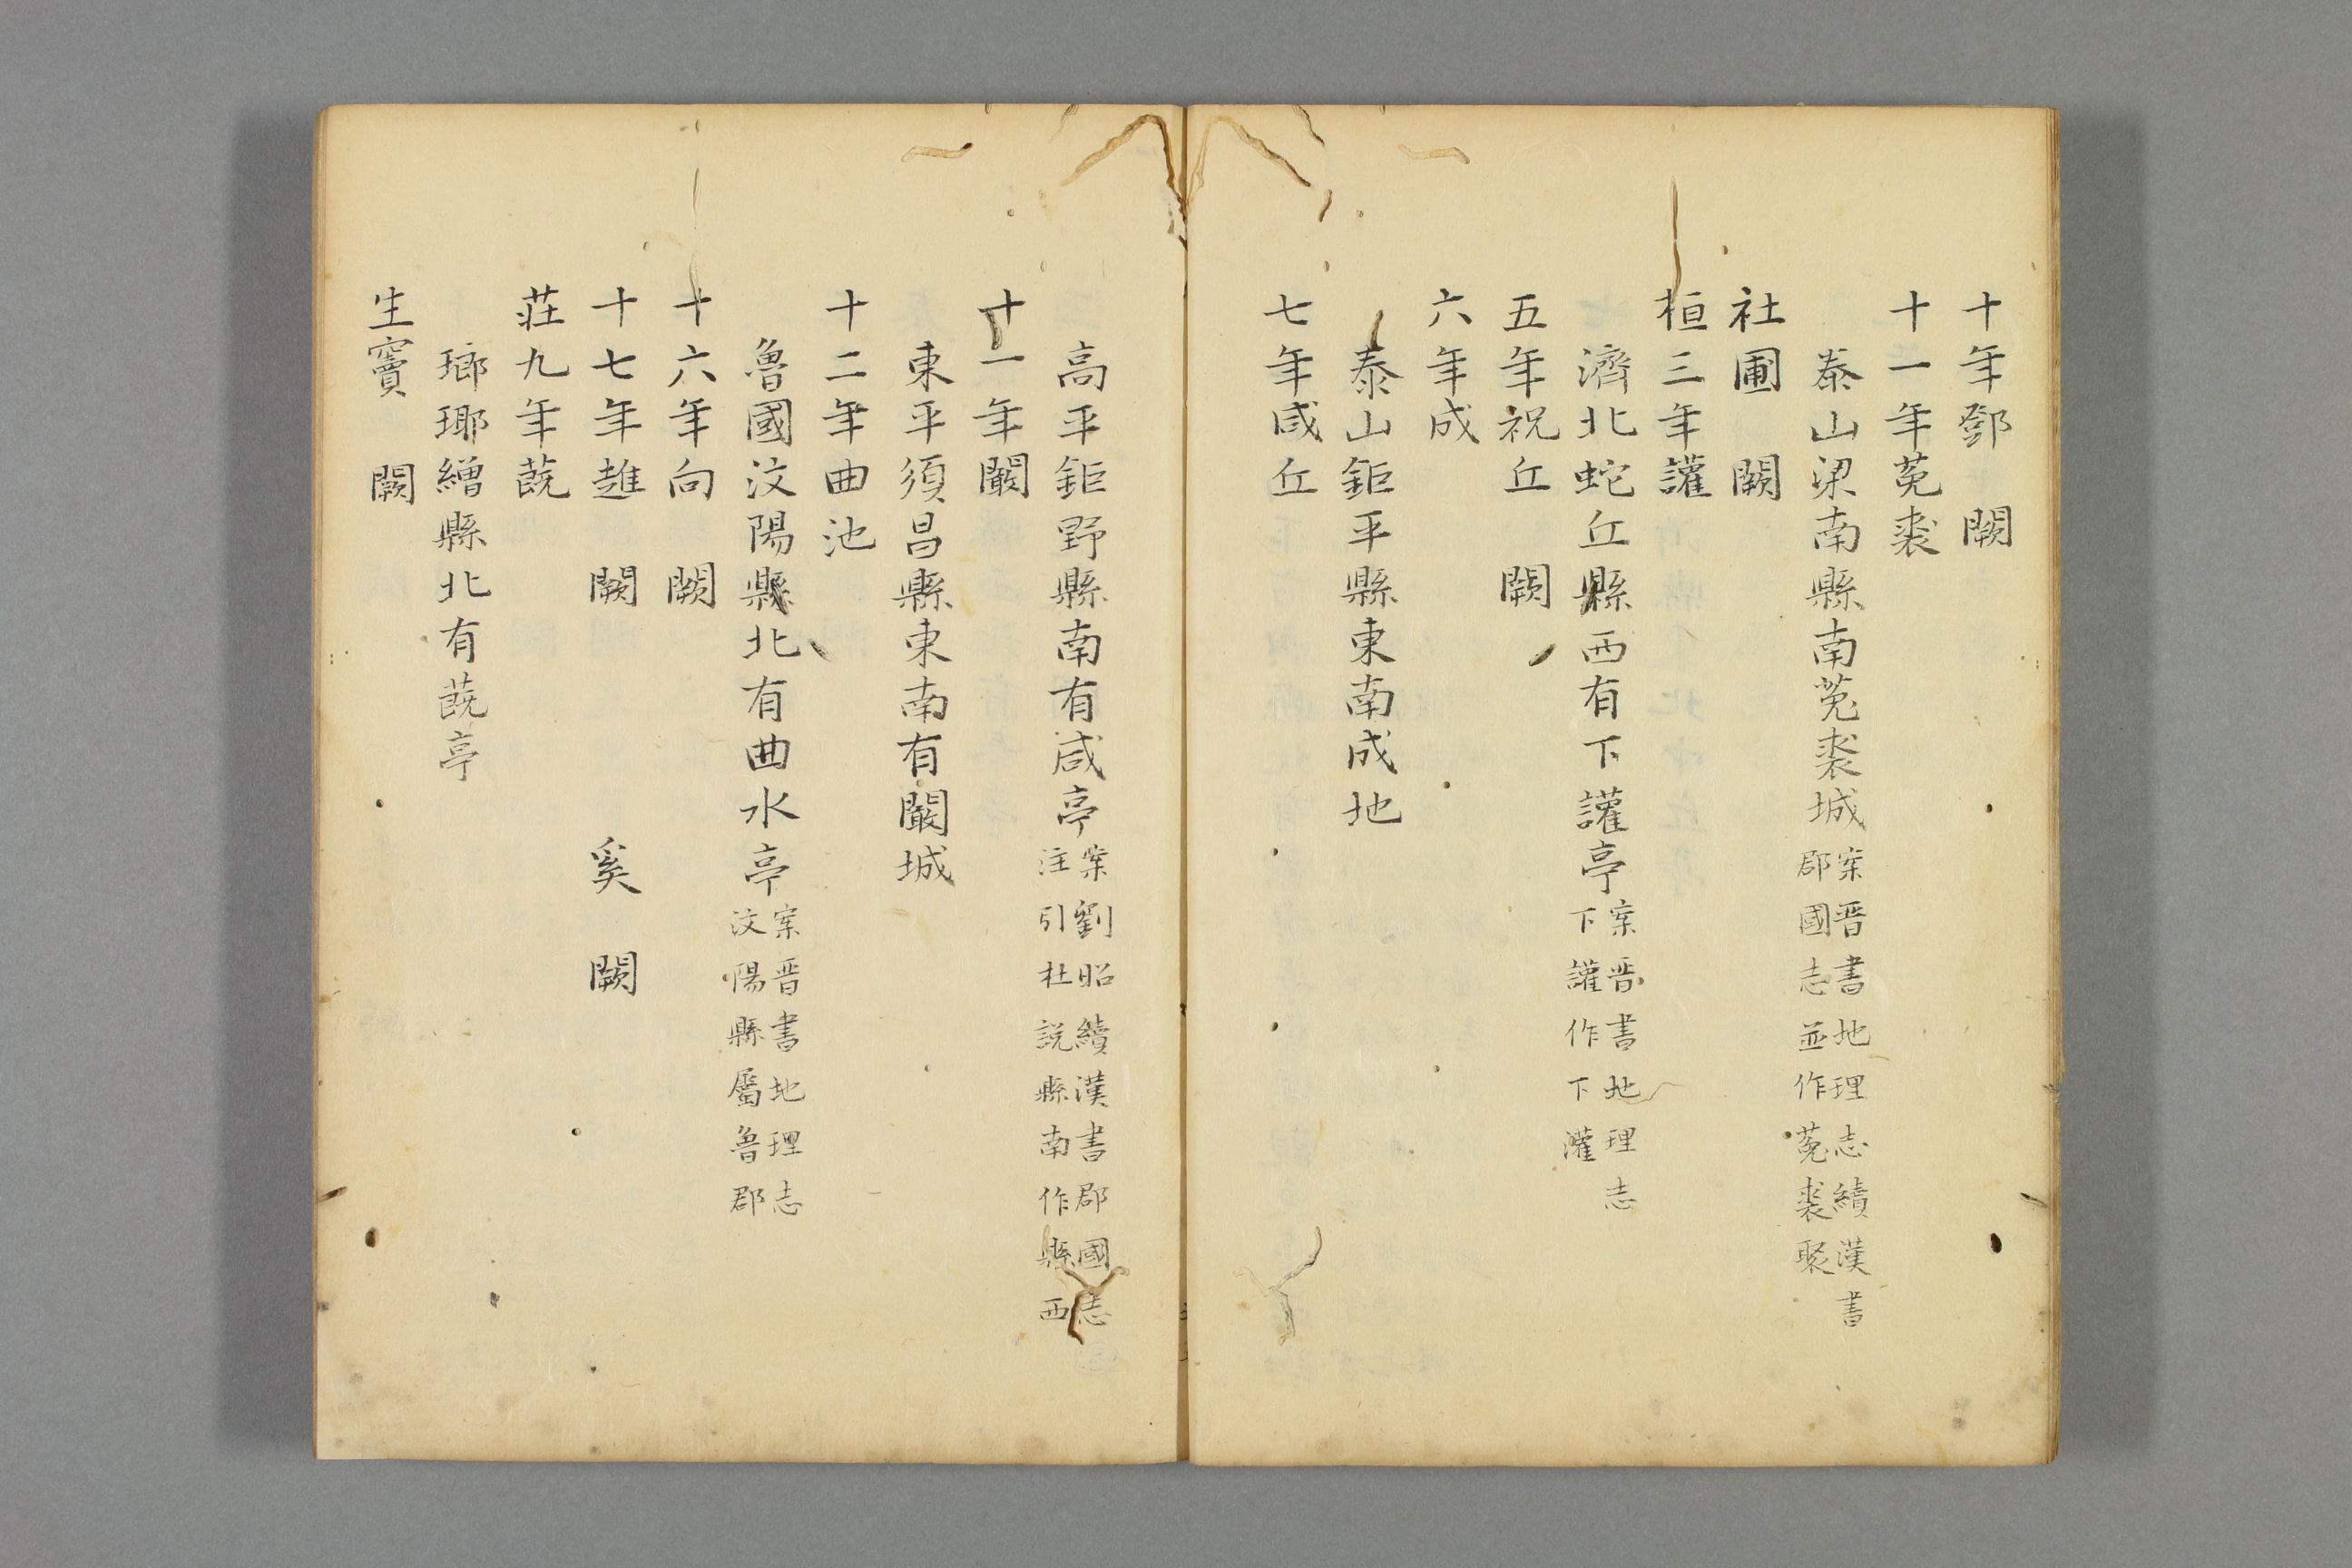 十年鄧　闕
十一年菟裘
泰山梁南縣南菟裘城案晋書地理志續漢書郡國志並作菟裘聚
社圃　闕
桓三年讙
濟北蛇丘縣西有下讙亭案晋書地理志下讙作下灌
五年祝丘　闕
六年成
泰山鉅平縣東南成地
七年咸丘
高平鉅野縣南有咸亭案劉昭續漢書郡國志注引杜説縣南作縣西
十一年闞
東平須昌縣東南有闞城
十二年曲池
魯國汶陽縣北有曲水亭案晋書地理志汶陽縣屬魯郡
十六年向　闕
十七年趡　闕　　　　奚　闕
莊九年蔇
瑯琊繒縣北有蔇亭
生竇　闕